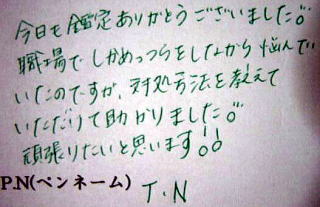 今日も鑑定ありがとうございました。
職場でしかめっつらをしながら悩んで
いたのですが、対処方法を教えて
いただけて助かりました。
頑張りたいと思います!!
P.N(ペンネーム) T・N